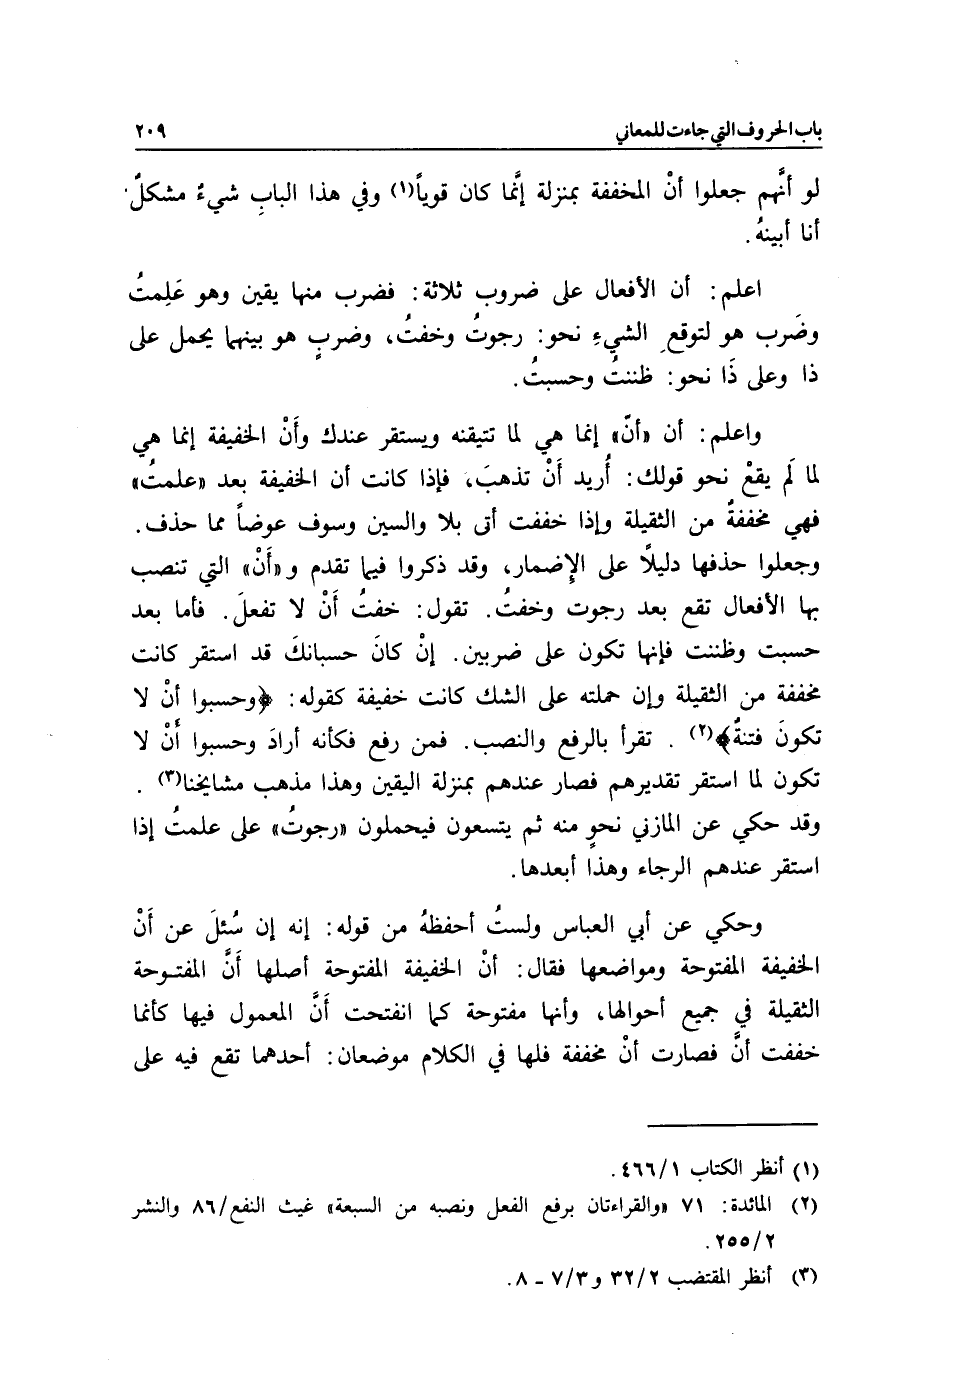 باب الحروف التي جاءت للمعاني ٢٠٩
لو أنَّهم جعلوا أنْ المخففة بمنزلة إنَّما كان قوياً(١) وفي هذا البابِ شيءٌ مشكلٌ.
أنا أبينهُ.
اعلم: أن الأفعال على ضروب ثلاثة: فضرب منها يقين وهو عَلِمتُ
وضَرب هو لتوقعِ الشيءِ نحو: رجوتُ وخفتُ، وضربٍ هو بينهما يحمل على
ذا وعلى ذَا نحو: ظننتُ وحسبتُ.
واعلم: أن «أنّ» إنما هي لما تتيقنه ويستقر عندك وأَنْ الخفيفة إنما هي
لما لَم يقعْ نحو قولك: أُريد أَنْ تذهبَ، فإذا كانت أن الخفيفة بعد «علمتُ»
فهي مخففةٌ من الثقيلة وإذا خففت أتى بلا والسين وسوف عوضاً مما حذف.
وجعلوا حذفها دليلًا على الإِضمار، وقد ذكروا فيما تقدم و«أَنْ» التي تنصب
بها الأفعال تقع بعد رجوت وخفتُ. تقول: خفتُ أَنْ لا تفعلَ. فأما بعد
حسبت وظننت فإنها تكون على ضربين. إنْ كانَ حسبانكَ قد استقر كانت
مخففة من الثقيلة وإن حملته على الشك كانت خفيفة كقوله: ﴿وحسبوا أنْ لا
تكونَ فتنةٌ﴾(٢) . تقرأ بالرفع والنصب. فمن رفع فكأنه أرادَ وحسبوا أَنْ لا
تكون لما استقر تقديرهم فصار عندهم بمنزلة اليقين وهذا مذهب مشايخنا(٣) .
وقد حكي عن المازني نحوٍ منه ثم يتسعون فيحملون «رجوتُ» على علمتُ إذا
استقر عندهم الرجاء وهذا أبعدها.
وحكي عن أبي العباس ولستُ أحفظهُ من قوله: إنه إن سُئلَ عن أَنْ
الخفيفة المفتوحة ومواضعها فقال: أنْ الخفيفة المفتوحة أصلها أَنَّ المفتـوحة
الثقيلة في جميع أحوالها، وأنها مفتوحة كما انفتحت أَنَّ المعمول فيها كأنما
خففت أنَّ فصارت أنْ مخففة فلها في الكلام موضعان: أحدهما تقع فيه على
(١) أنظر الكتاب ٤٦٦/١.
(٢) المائدة: ٧١ «والقراءتان برفع الفعل ونصبه من السبعة» غيث النفع/٨٦ والنشر
٢٥٥/٢.
(٣) أنظر المقتضب ٣٢/٢ و٧/٣ - ٨.